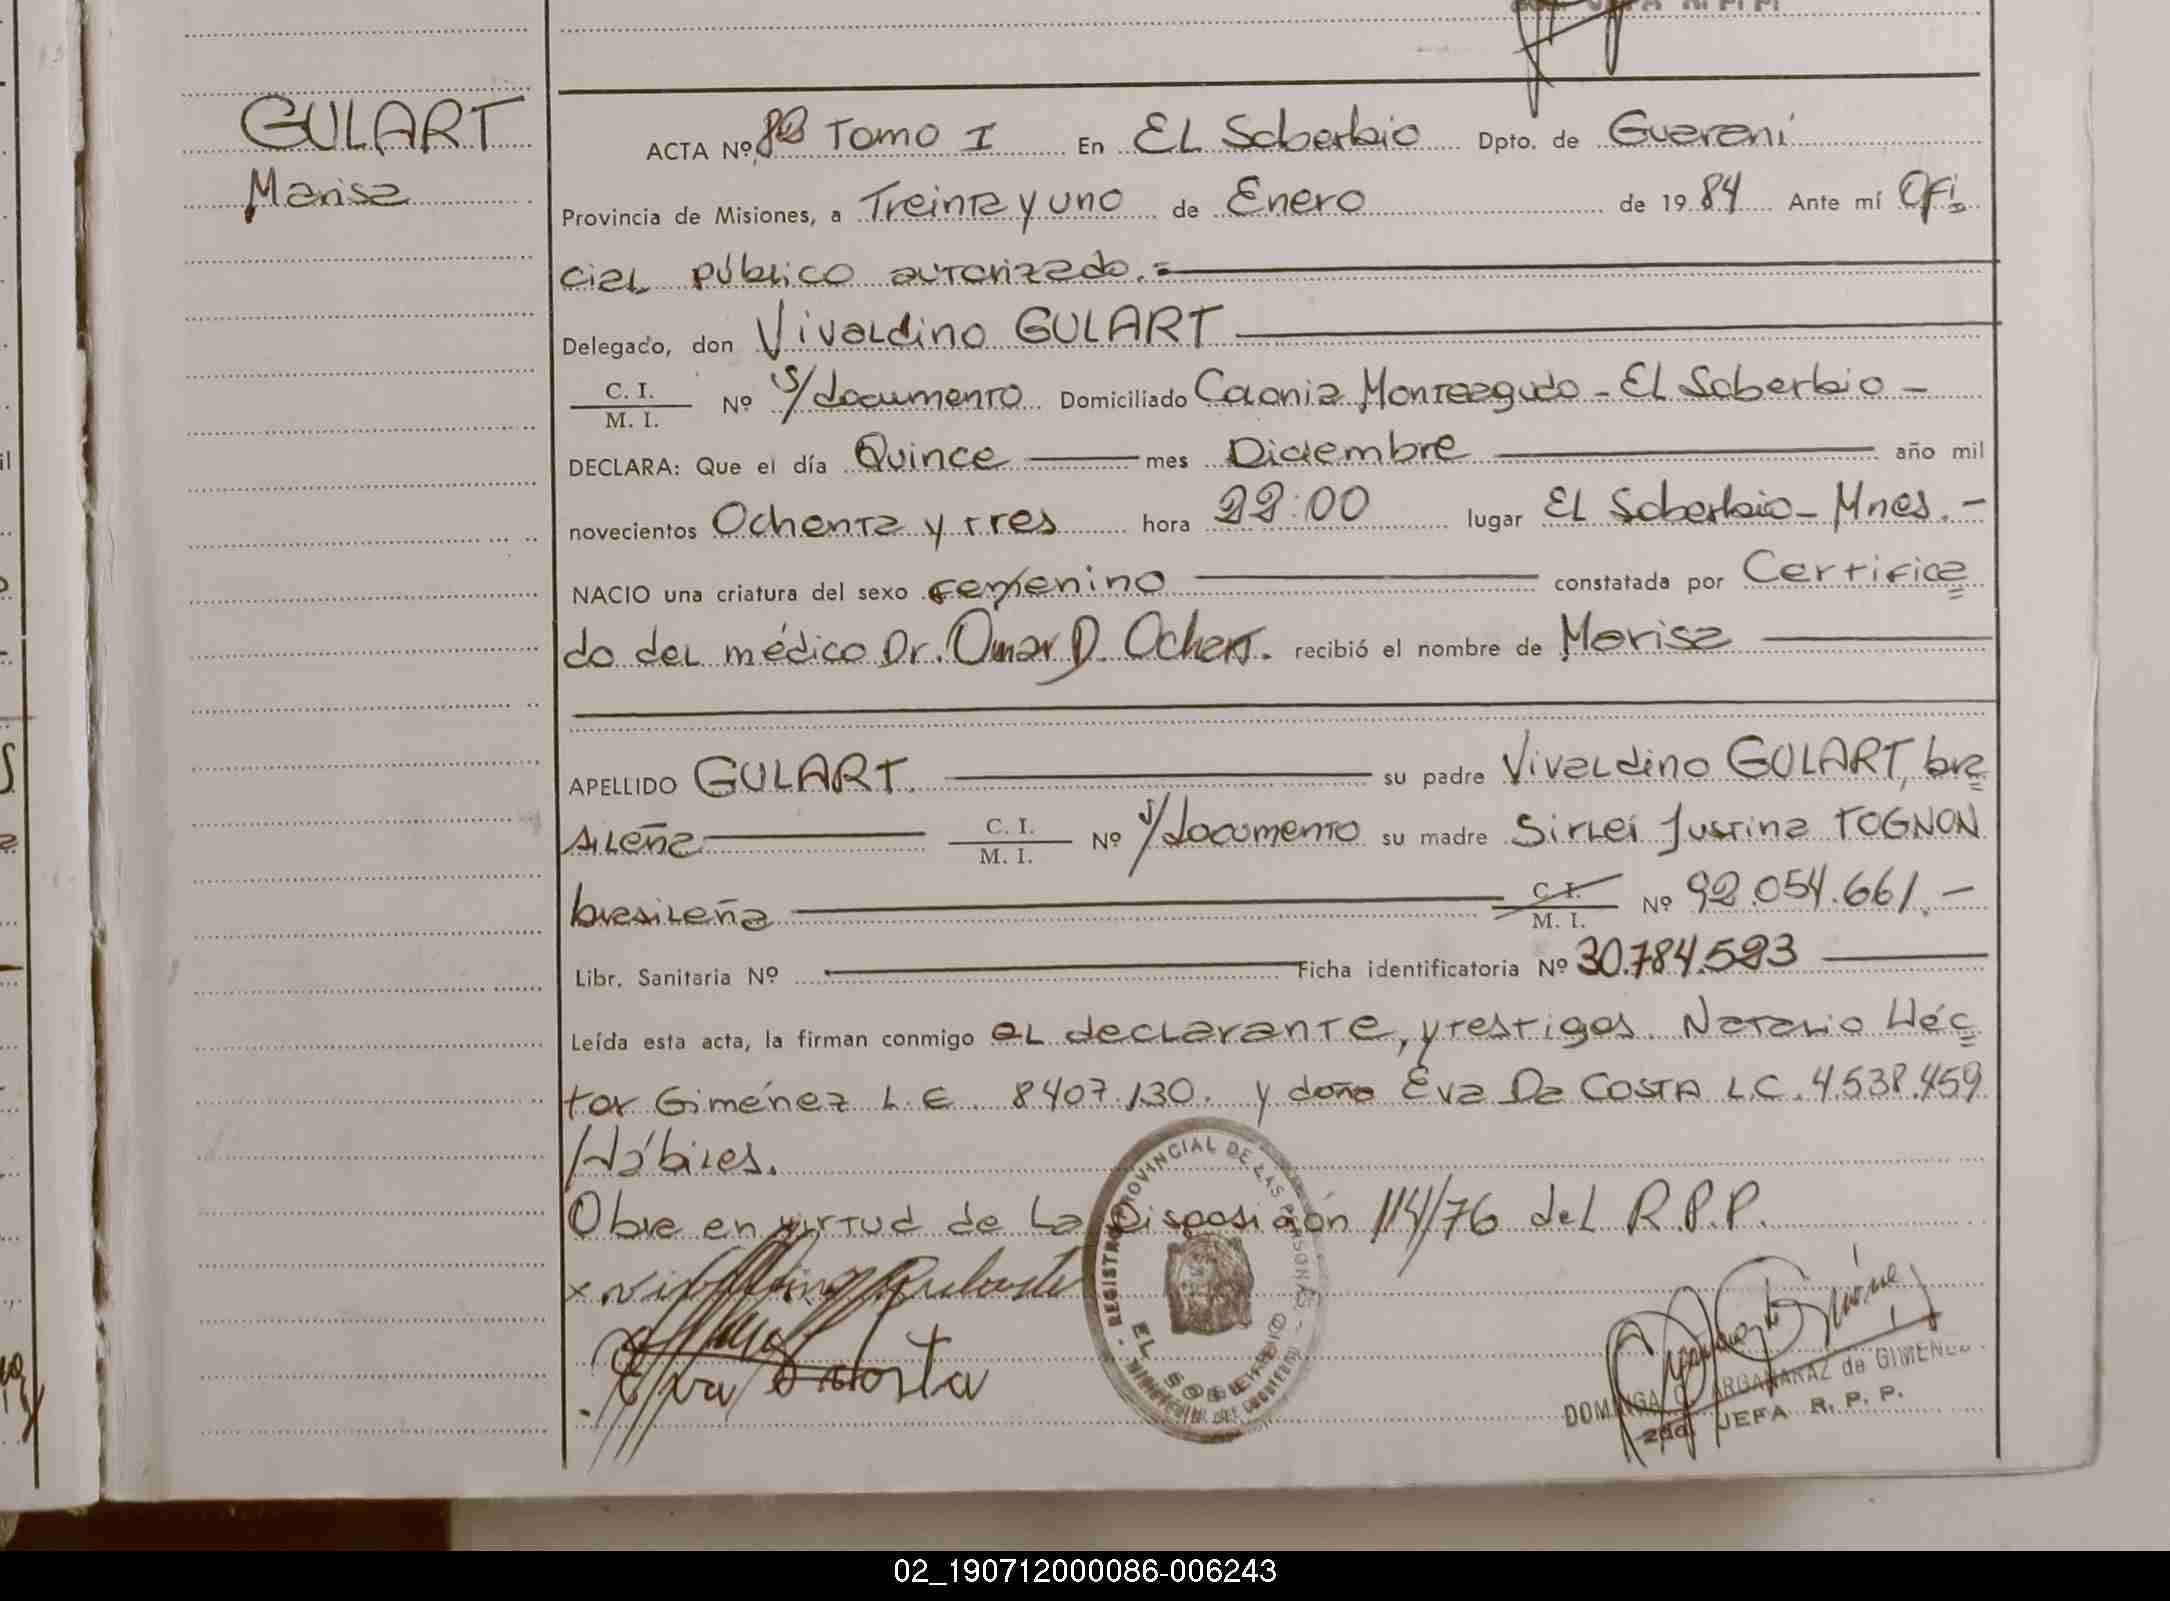 GULART
Marisa
ACTA Nº 82 Tomo I En EL Soberbio Dpto. de Guaraní
Provincia de Misiones, a Treinta y uno de Enero de 1984 Ante mí Ofi
cial público autorizado.=
Delegado, don Vivaldino GULART
C. I.
M. I. Nº s/documento Domiciliado Colonia Monteagudo - EL Soberbio -
DECLARA: Que el día Quince mes Diciembre año mil
novecientos Ochenta y tres hora 22:00 lugar EL Soberbio - Mnes. -
NACIO una criatura del sexo femenino constatada por Certifica
do del médico Dr. Omar D. recibió el nombre de Marisa
APELLIDO GULART. su padre Vivaldino GULART, bra
sileña C. I. M. I. Nº s/documento su madre Sirlei Justina TOGNON
brasileña C. I. M. I. Nº 92.054.661.-
Libr. Sanitaria Nº Ficha identificatoria Nº 30.784.523
Leída esta acta, la firman conmigo el declarante, y testigos. Natalio Héc
tor Giménez L.E. 8407.130. y doña Eva Da COSTA L.C. 4.538.459
Hábiles.
Obra en virtud de la Disposición 114/76 del R.P.P.
Eva Dacosta
REGISTRO PROVINCIAL DE LAS PERSONAS
EL SOBERBIO
MINISTERIO DE GOBIERNO
DOMINGA C. ARGAÑARAZ de GIMENEZ
2da. JEFA R. P. P.
02_190712000086-006243